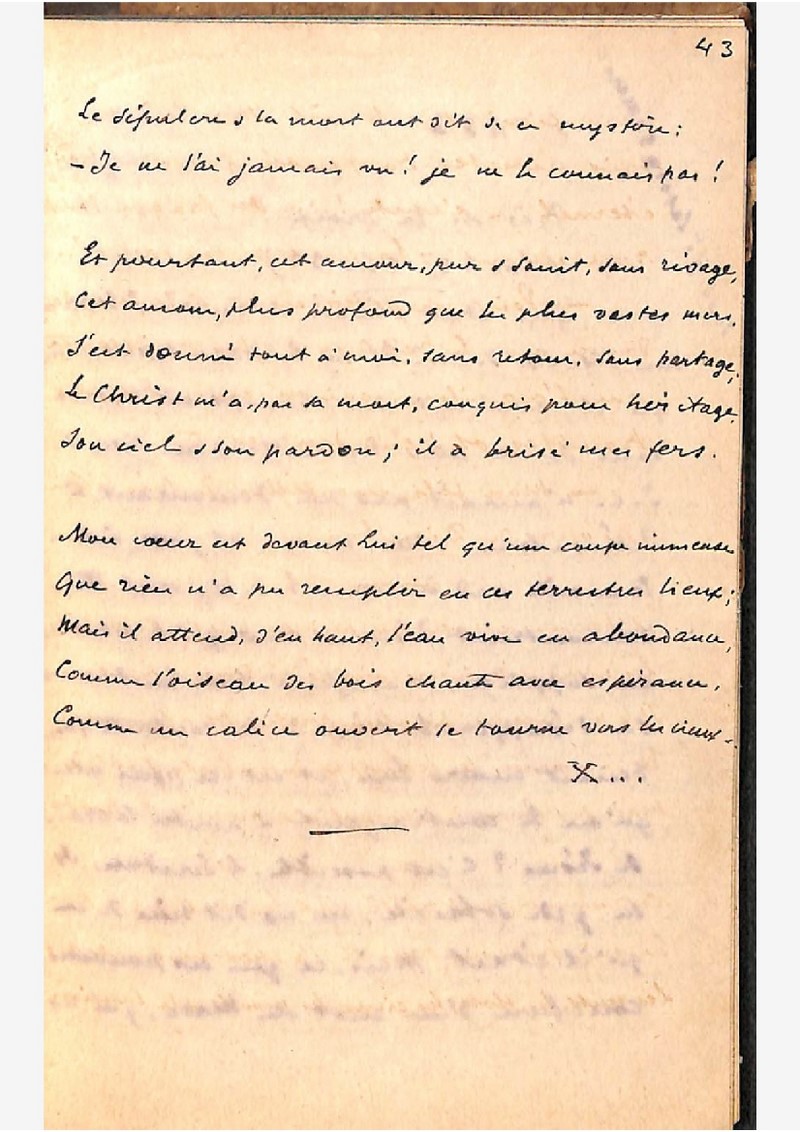 43
Le sépulcre & la mort ont dit de ce mystère:
– Je ne l'ai jamais vu! je ne le connais pas!
Et pourtant, cet amour, pur & saint, sans rivage,
Cet amour, plus profond que les plus vastes mers,
S'est donné tout à moi, sans retour, sans partage;
Le Christ m'a, par sa mort, conquis pour héritage
Son ciel & son pardon; il a brisé mes fers.
Mon cœur est devant lui tel qu'une coupe immense
Que rien n'a pu remplir en ces terrestres lieux;
Mais il attend, d'en haut, l'eau vive en abondance,
Comme l'oiseau des bois chante avec espérance,
Comme un calice ouvert se tourne vers les cieux.
X...